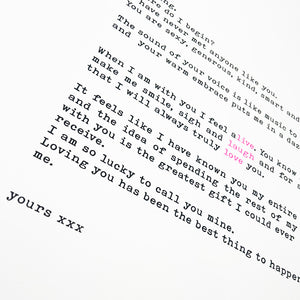 ng,
re do I begin?
have never met anyone like you.
You are sexy, generous, kind, smart and
The sound of your voice is like music to
and your warm embrace puts me in a daz
When I am with you I feel alive. You know
make me smile, sigh and laugh and for
that I will always truly love you.
It feels like I have known you my entire
and the idea of spending the rest of my
with you is the greatest gift I could ever
receive.
I am so lucky to call you mine.
Loving you has been the best thing to happen
me.
yours xxx